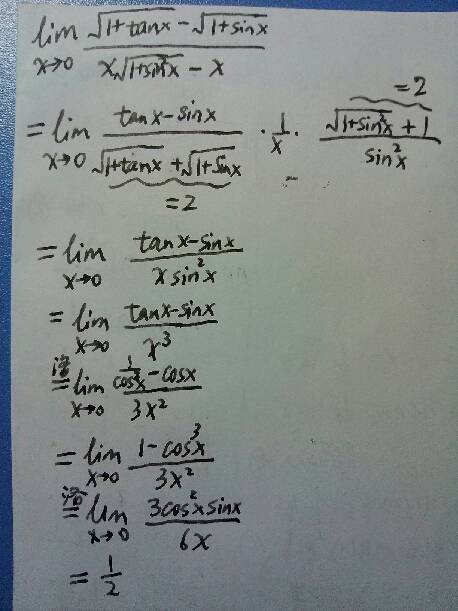 lim x→0 (√(1+tanx) - √(1+sinx)) / (x√(1+sin²x) - x)
= lim x→0 (tanx - sinx) / (√(1+tanx) + √(1+sinx)) · 1/x · (√(1+sin²x) + 1) / sin²x =2
=2
= lim x→0 (tanx - sinx) / (x sin²x)
= lim x→0 (tanx - sinx) / x³
洛= lim x→0 (1/cos²x - cosx) / 3x²
= lim x→0 (1 - cos³x) / 3x²
洛= lim x→0 (3cos²x sinx) / 6x
= 1/2